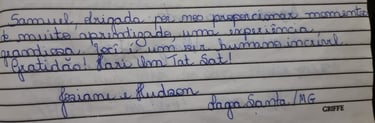 Samuel, obrigada por nos proporcionar momentos
de muito aprendizado, uma experiência
grandiosa. Você é um ser humano incrível.
Gratidão! Hari Om Tat Sat!
Josiane e Hudson
Lagoa Santa/MG
GRIFFE